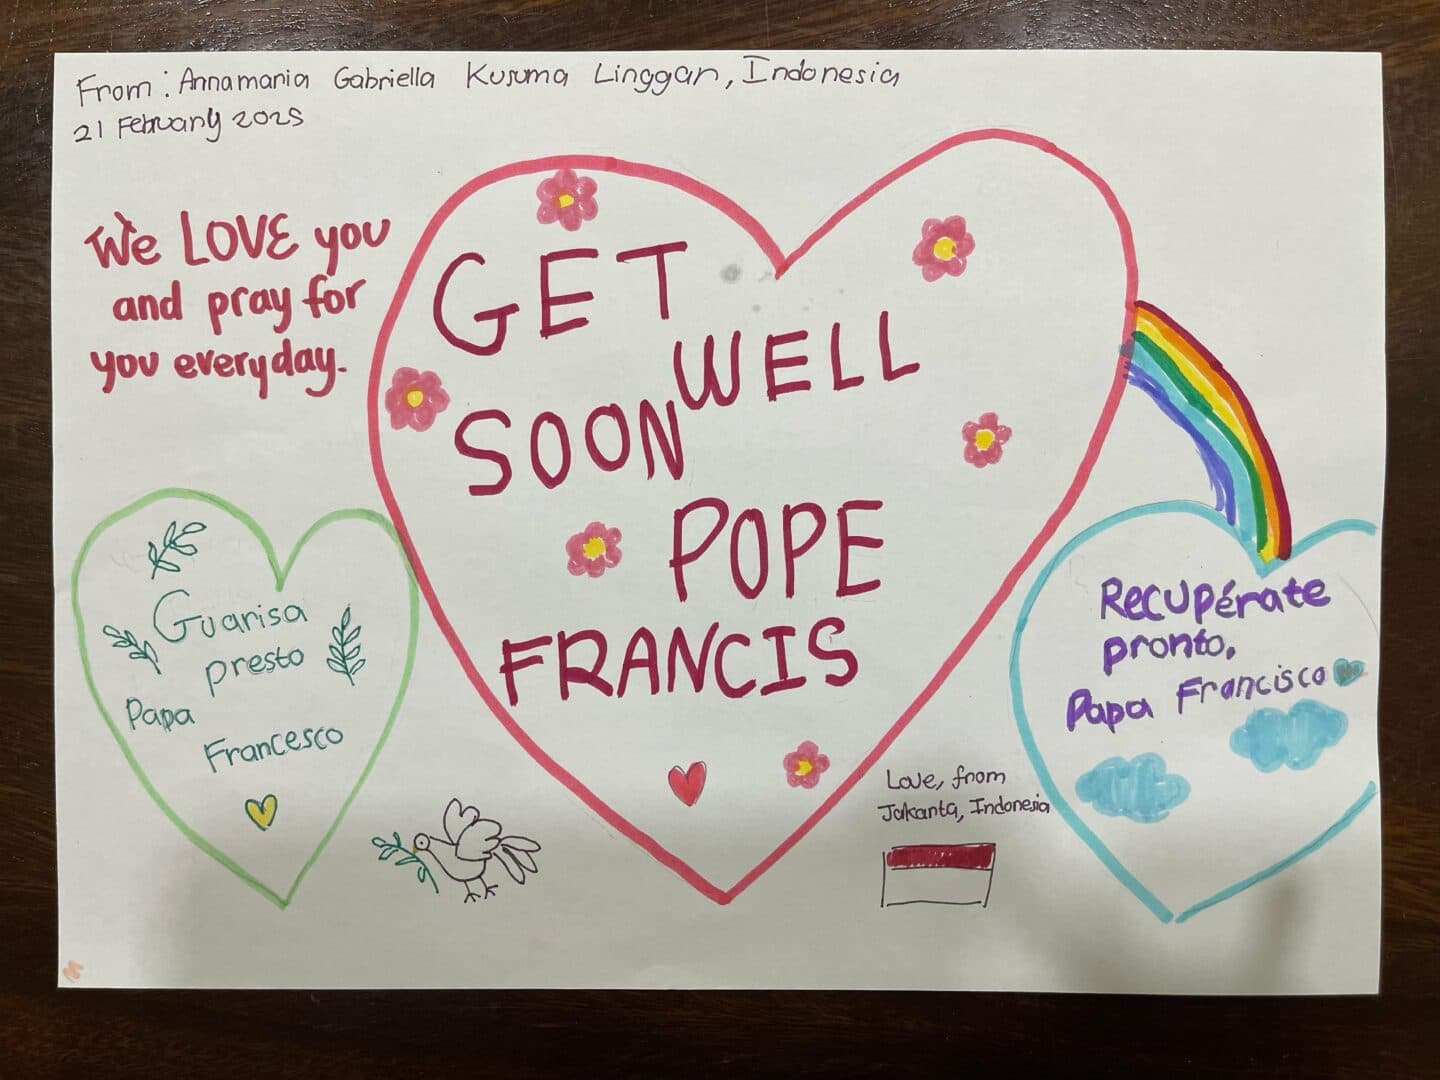 From: Annamaria Gabriella Kusuma Linggar, Indonesia
21 February 2025
We LOVE you
and pray for
you everyday.
GET
WELL
SOON
POPE
FRANCIS
Guarisa
presto
Papa
Francesco
Recupérate
pronto,
Papa Francisco
Love, from
Jakarta, Indonesia